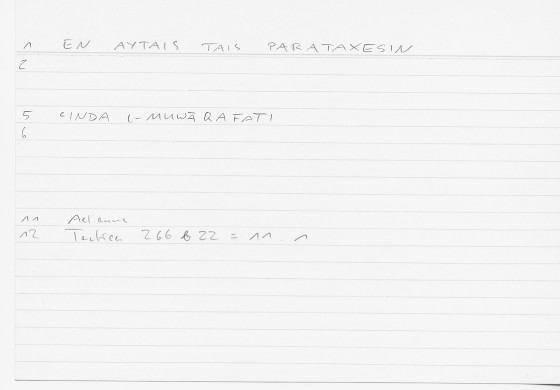 1 EN AYTAIS TAIS PARATAXESIN
2
5 ʿINDA L-MUWĀQAFATI
6
11 Aelianus
12 Tactica 266 b 22 = 11. 1